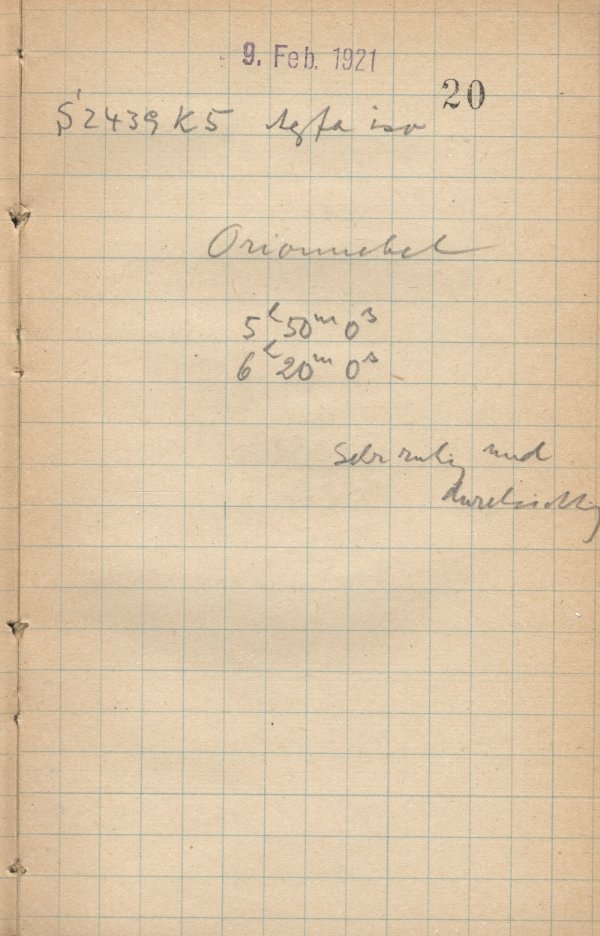 9. Feb. 1921
20
S' 2439 K5 Agfa iso
Orionnebel
5h 50m 0s
6h 20m 0s
Sehr ruhig und
durchsichtig